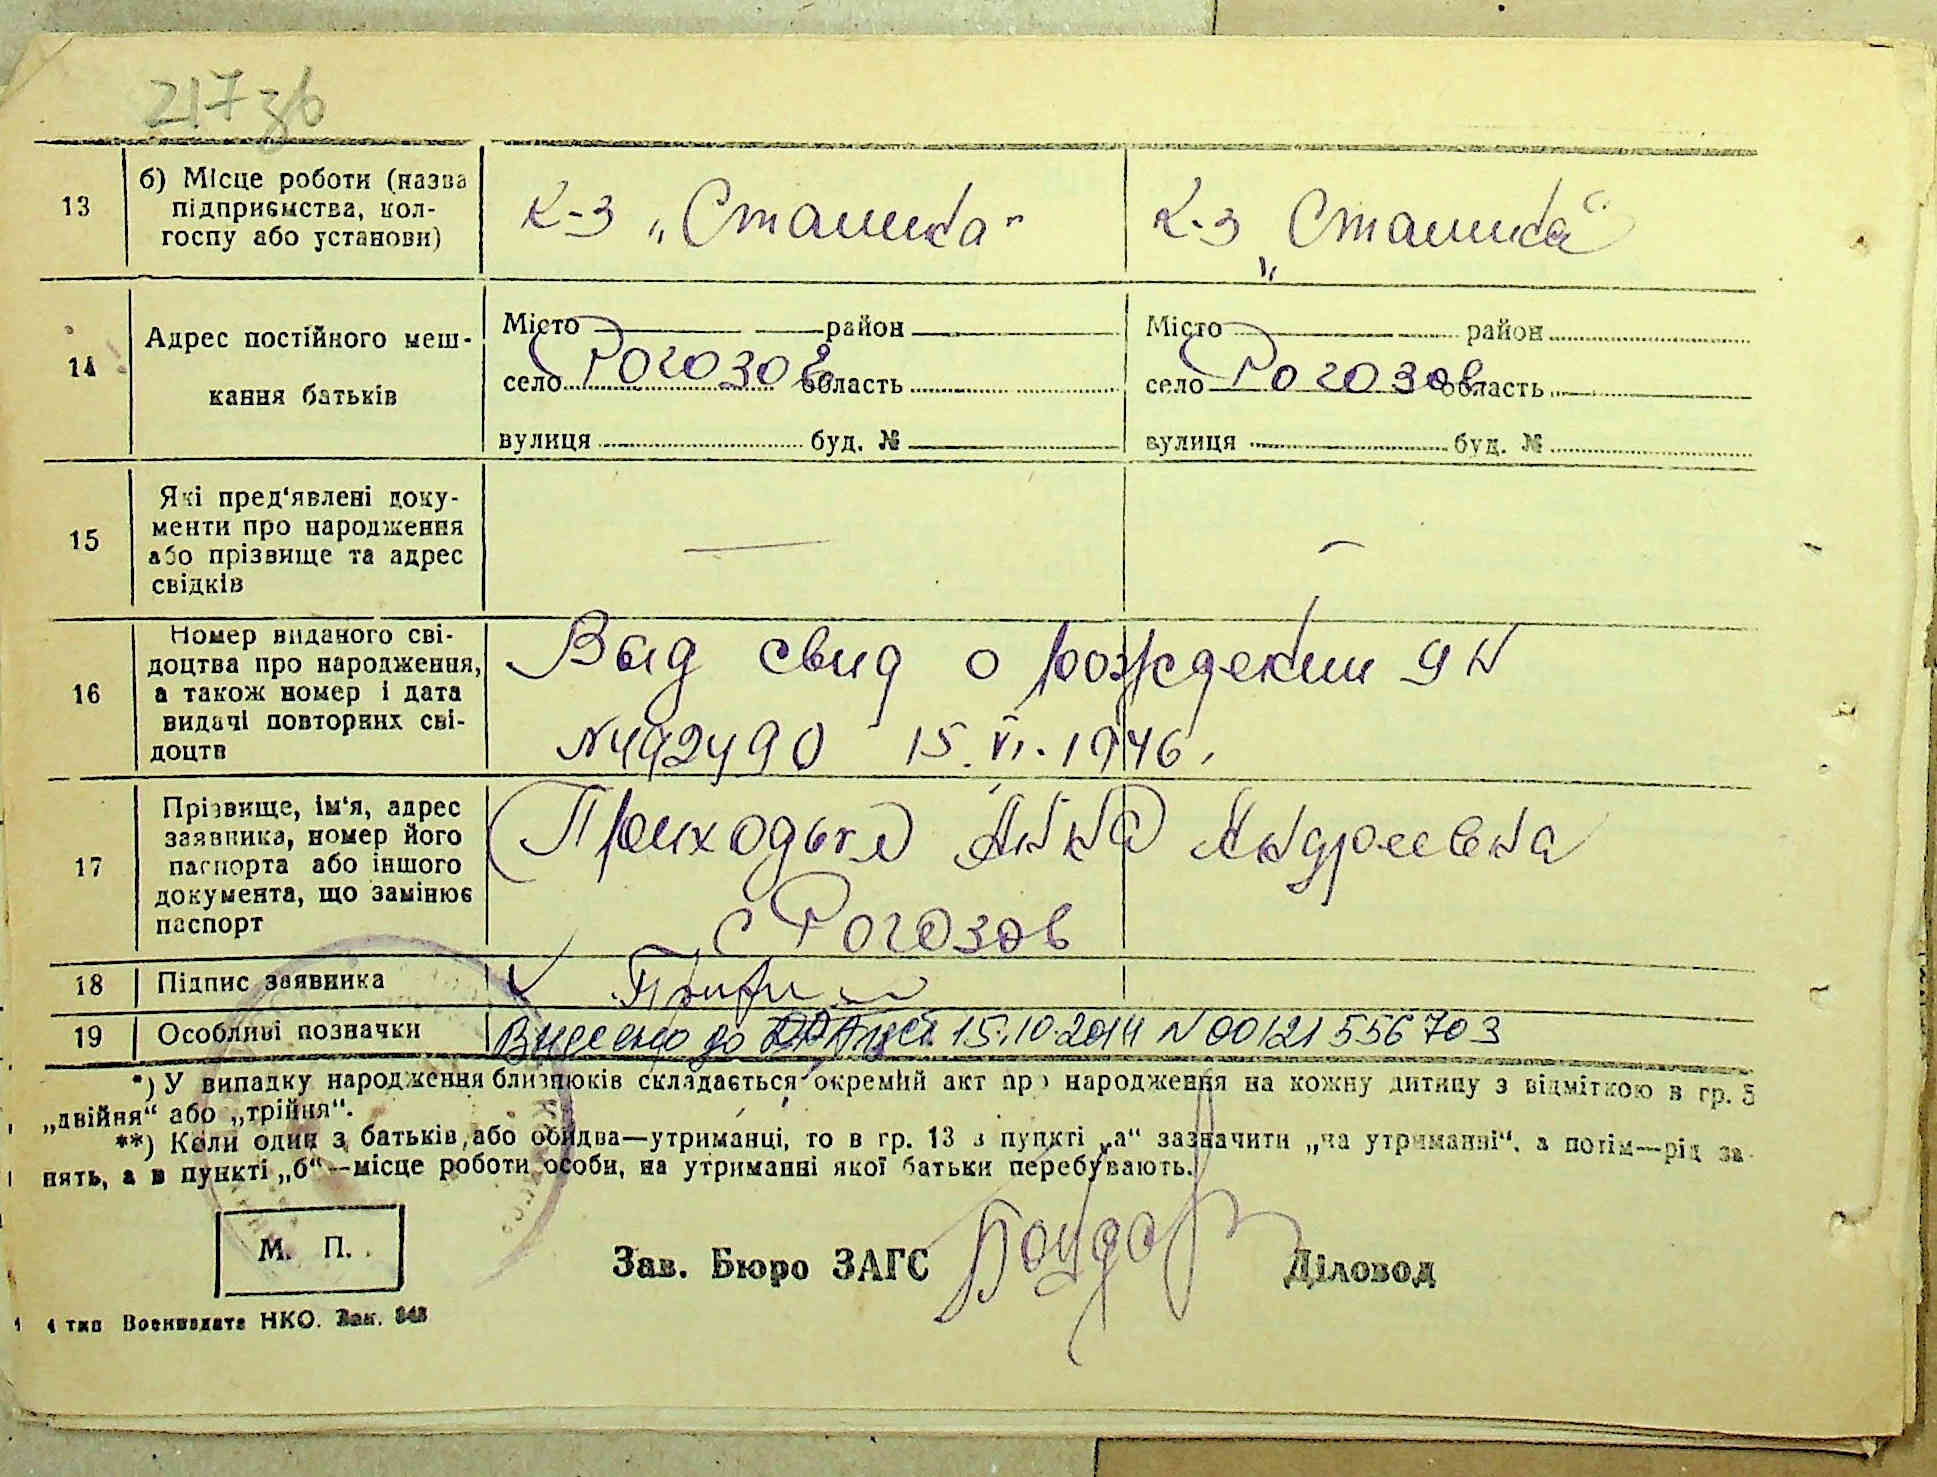 217 зв
13
б) Місце роботи (назва
підприємства, кол-
госпу або установи)
К-з „Сталика"
К-з „Сталика"
14
Адрес постійного меш-
кання батьків
Місто район
село Рогозов область
вулиця буд. №
Місто район
село Рогозов область
вулиця буд. №
15
Які пред'явлені доку-
менти про народження
або прізвище та адрес
свідків
—
—
16
Номер виданого сві-
доцтва про народження,
а також номер і дата
видачі повторних сві-
доцтв
Выд свид о рождении
N 492490 15.VI.1946.
17
Прізвище, ім'я, адрес
заявника, номер його
паспорта або іншого
документа, що замінює
паспорт
Приходько Анна Андреевна
с Рогозов
18
Підпис заявника
19
Особливі позначки
Внесено до 15.10.2014 N 00121556703
*) У випадку народження близнюків складається окремий акт про народження на кожну дитину з відміткою в гр. 5
„двійня" або „трійня".
**) Коли один з батьків, або обидва—утриманці, то в гр. 13 в пункті „а" зазначити „на утриманні", а потім—рід за-
нять, а в пункті „б"—місце роботи особи, на утриманні якої батьки перебувають.
М. П.
Зав. Бюро ЗАГС
Діловод
4 тип Воениздата НКО. Зак.